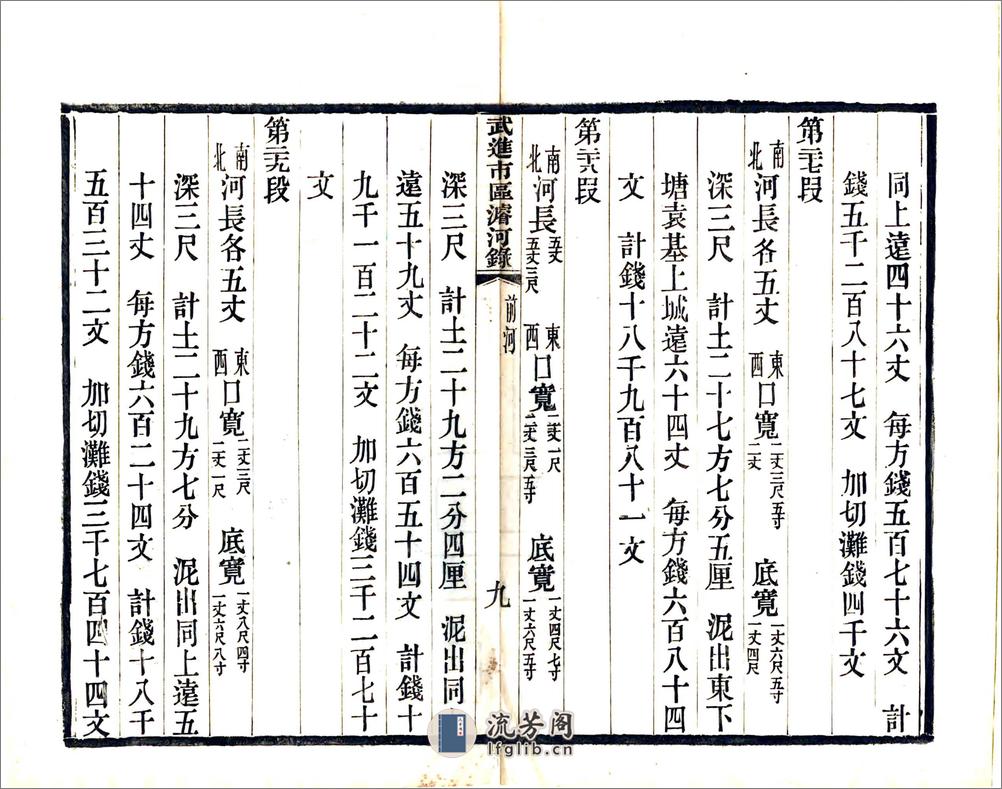 同上遠四十六丈　每方錢五百七十六文　計
錢五千二百八十七文　加切灘錢四千文
第二十七段
南北河長各五丈　東西口寬二丈三尺五寸二丈　底寬一丈六尺五寸一丈四尺
深三尺　計土二十七方七分五厘　泥出東下
塘袁基上城遠六十四丈　每方錢六百八十四
文　計錢十八千九百八十一文
第二十八段
南北河長五丈五丈三尺　東西口寬二丈一尺二丈三尺五寸　底寬一丈四尺七寸一丈六尺五寸
武進市區濬河錄　前河　九
深三尺　計土二十九方二分四厘　泥出同
遠五十九丈　每方錢六百五十四文　計錢十
九千一百二十二文　加切灘錢三千二百七十
文
第二十九段
南北河長各五丈　東西口寬二丈三尺二丈一尺　底寬一丈八尺四寸一丈六尺八寸
深三尺　計土二十九方七分　泥出同上遠五
十四丈　每方錢六百二十四文　計錢十八千
五百三十二文　加切灘錢三千七百四十四文
流芳阁
lfglib.cn